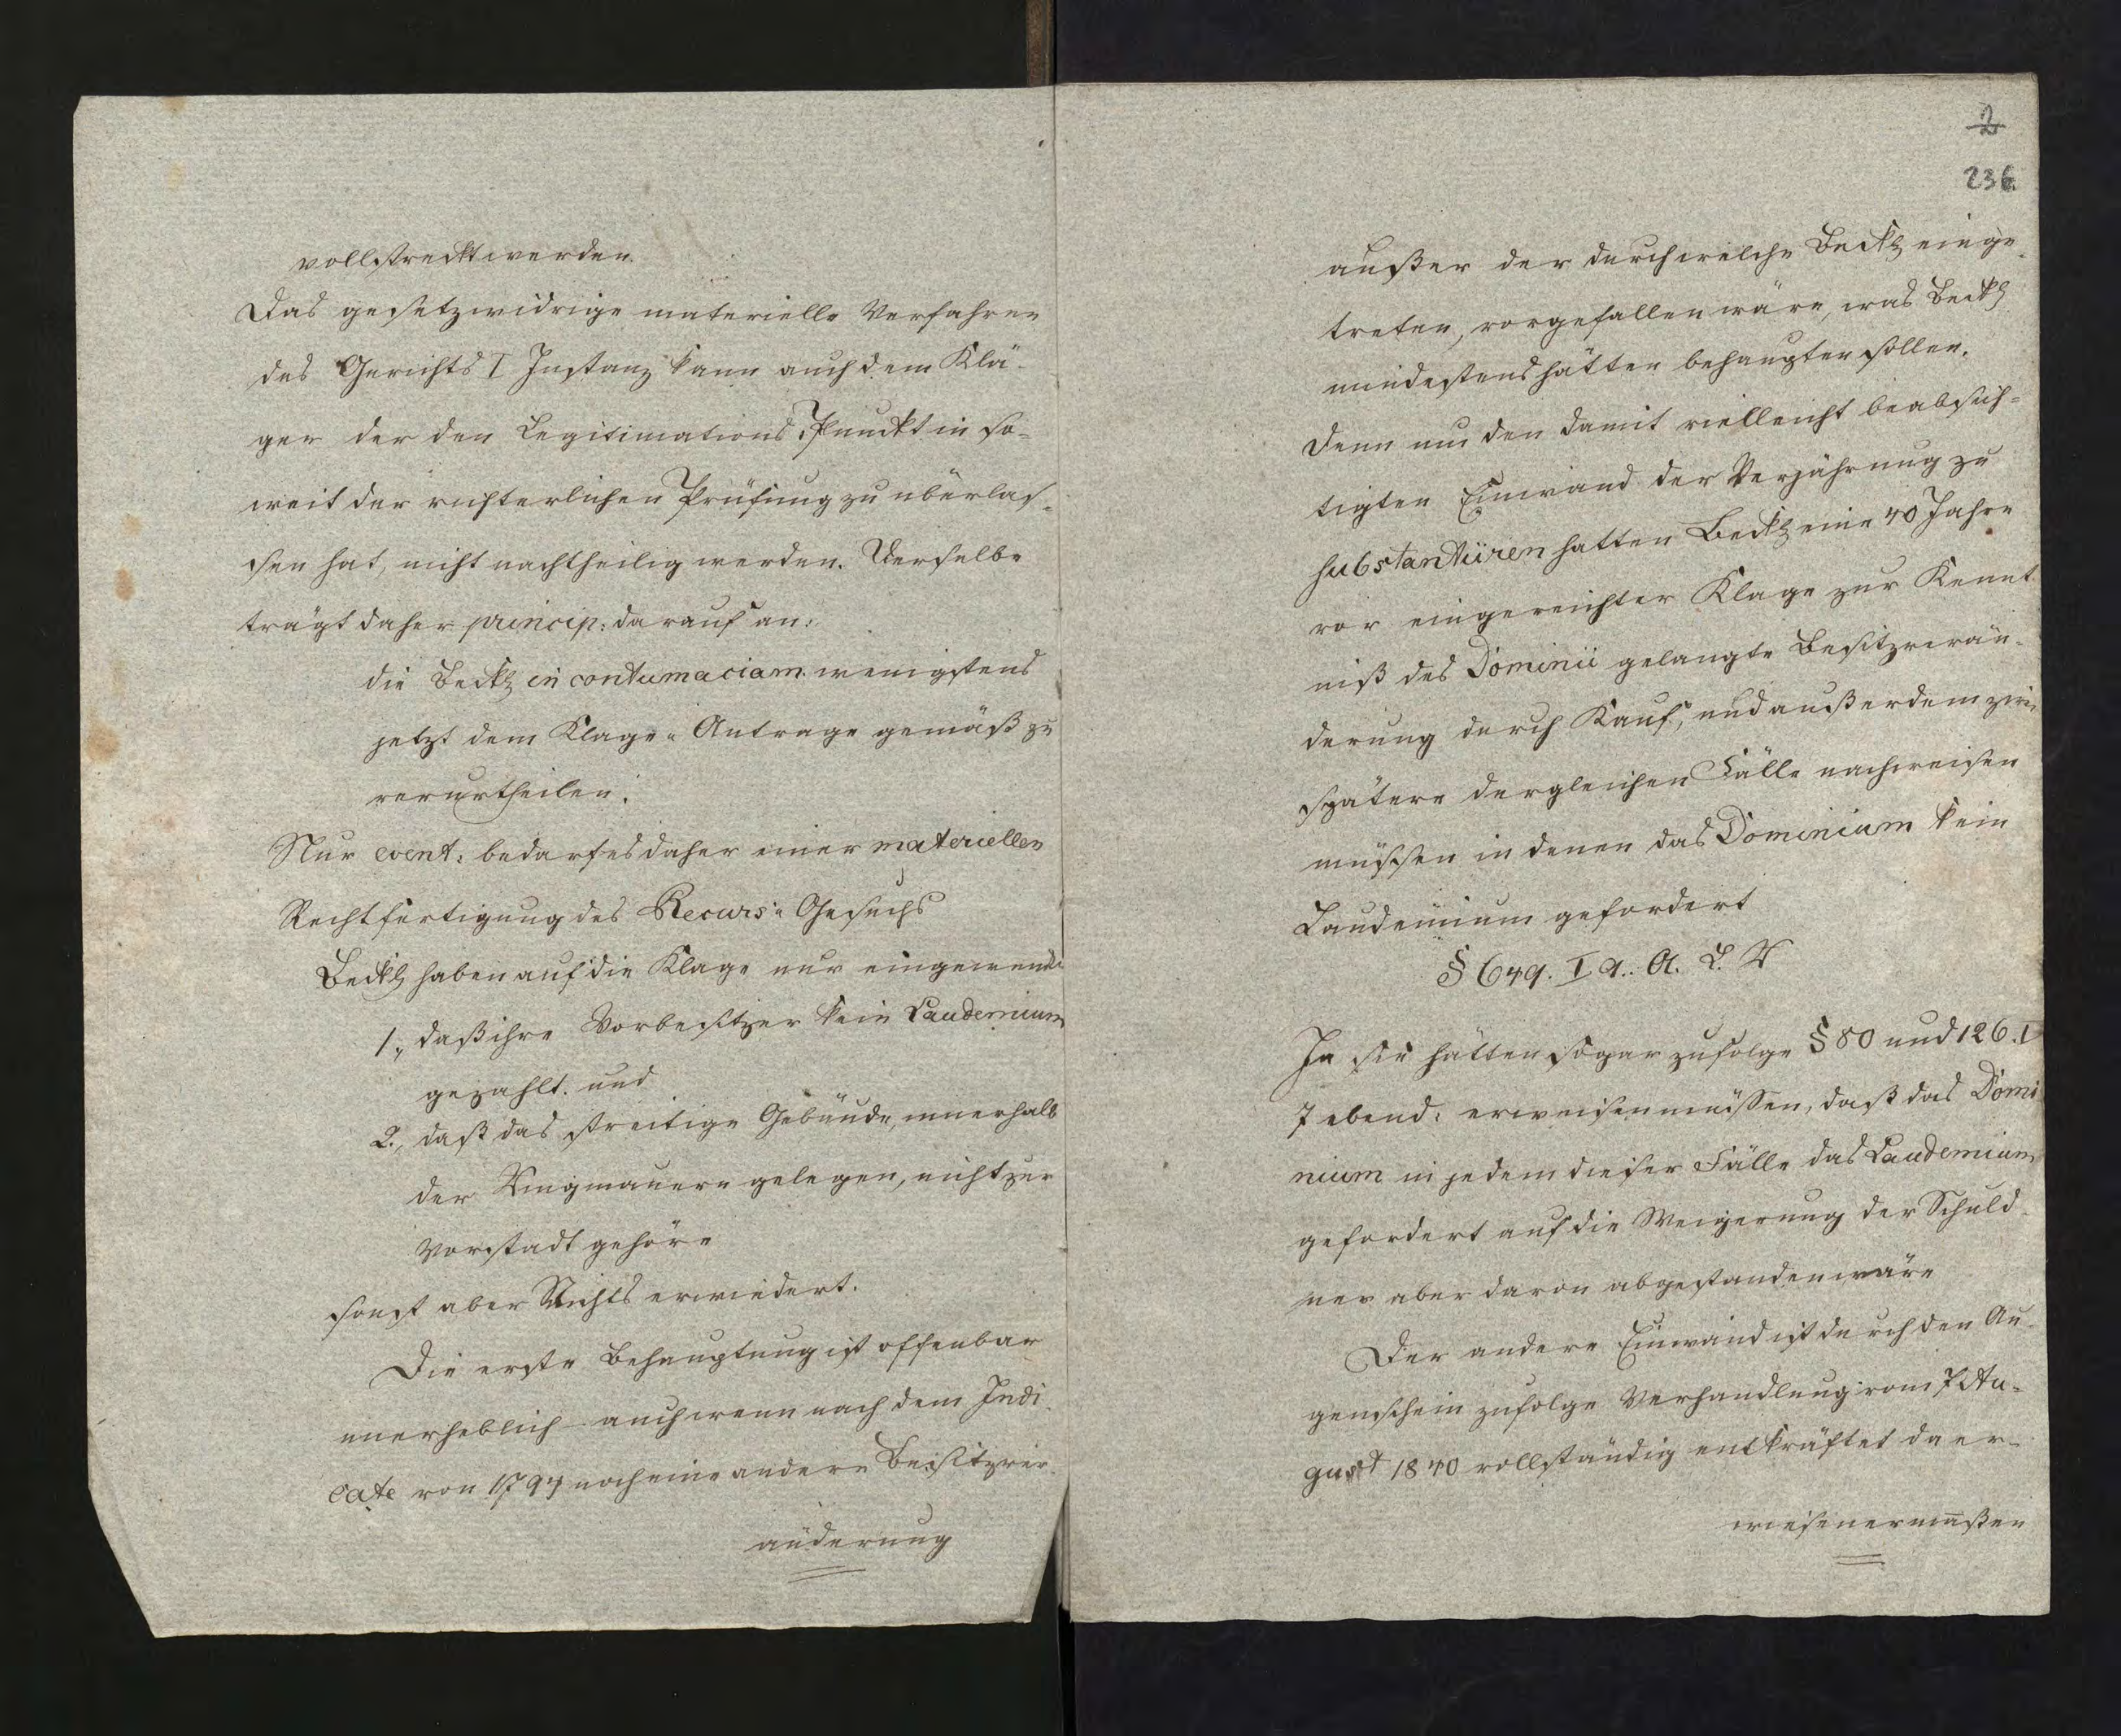 vollstreckt werden.
Das gesetzwidrige materielle Verfahren
des Gerichts I Instanz kann auch dem Klä-
ger der den Legitimations Punckt in so-
weit der richterlichen Prüfung zu überlas-
sen hat, nicht nachtheilig werden. Derselbe
trägt daher princip: darauf an:
die Beckl in contumaciam wenigstens
jetzt dem Klage-Antrage gemäß zu
verurtheilen.
Nur event: bedarf es daher einer materiellen
Rechtfertigung des Recurs-Gesuchs
Beckl haben auf die Klage nur eingewendet
1., daß ihre Vorbesitzer kein Laudemium
gezahlt. und
2., daß das streitige Gebäude, innerhalb
der Ringmauern gelegen, nicht zur
Vorstadt gehöre
sonst aber Nichts erwiedert.
Die erste Behauptung ist offenbar
unerheblich auch wenn nach dem Judi-
cate von 1794 noch eine andere Besitzver-
änderung
2
236
außer der durch welche Beckl einge-
treten, vorgefallen wäre, was Beckl
mindestens hätten behaupten sollen.
Denn um den damit vielleicht beabsich-
tigten Einwand der Verjährung zu
substantiiren hatten Beckl eine 40 Jahre
vor eingereichter Klage zur Kennt
niß des Dominii gelangte Besitzverän-
derung durch Kauf, und außerdem zwei
spätere dergleichen Fälle nachweisen
müssen in denen das Dominium kein
Laudemium gefordert
§ 649. I 9. A. L. R
Ja sie hätten sogar zufolge § 80 und 126. I
7 ebend: erweisen müssen, daß das Domi
nium in jedem dieser Fälle das Laudemium
gefordert auf die Weigerung der Schuld-
ner aber davon abgestanden wäre
Der andere Einwand ist durch den Au-
genschein zufolge Verhandlung vom 7 Au-
gust 1840 vollständig entkräftet da er-
wiesenermaßen